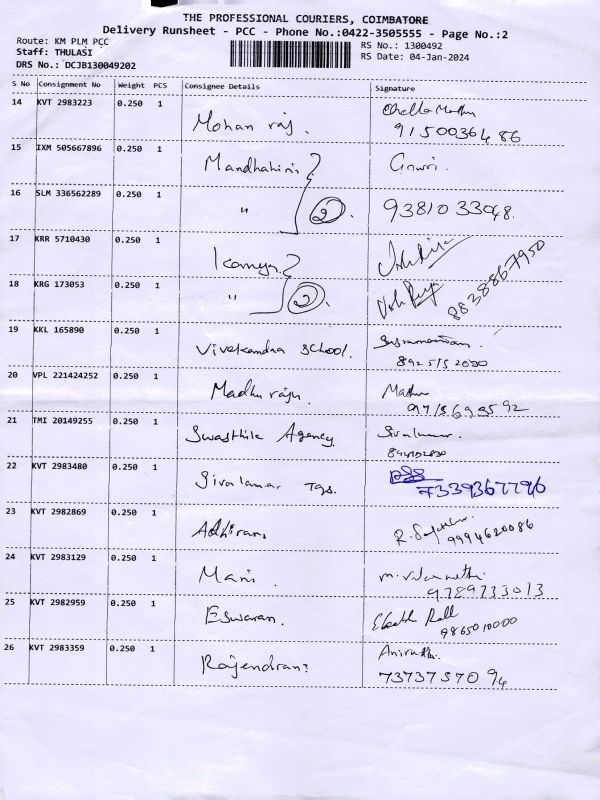 THE PROFESSIONAL COURIERS, COIMBATORE
Delivery Runsheet - PCC - Phone No.:0422-3505555 - Page No.:2
Route: KM PLM PCC
RS No.: 1300492
Staff: THULASI
RS Date: 04-Jan-2024
DRS No.: DCJB130049202
S No Consignment No Weight PCS Consignee Details Signature
14 KVT 2983223 0.250 1 Mohan raj.
9150036486
15 IXM 505667896 0.250 1
16 SLM 336562289 0.250 1 " 2 9381033048.
17 KRR 5710430 0.250 1
18 KRG 173053 0.250 1 " 2 8838867950
19 KKL 165890 0.250 1 School.
20 VPL 221424252 0.250 1 Madhu raju.
21 TMI 20149255 0.250 1 Agency.
22 KVT 2983480 0.250 1
7339367796
23 KVT 2982869 0.250 1
9994620086
24 KVT 2983129 0.250 1 Mani
9789733013
25 KVT 2982959 0.250 1 Eswaran.
9865010000
26 KVT 2983359 0.250 1 Rajendran
7373757094